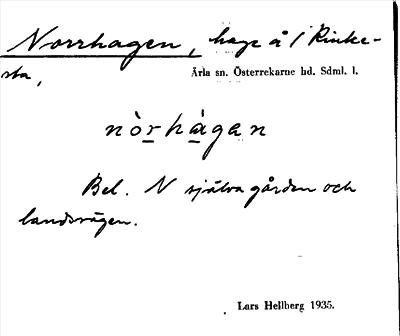 Norrhagen, hage å 1 Rinke-
sta, Ärla sn. Österrekarne hd. Sdml. l.
nòrhàgan
Bel. N själva gården och
landsvägen.
Lars Hellberg 1935.